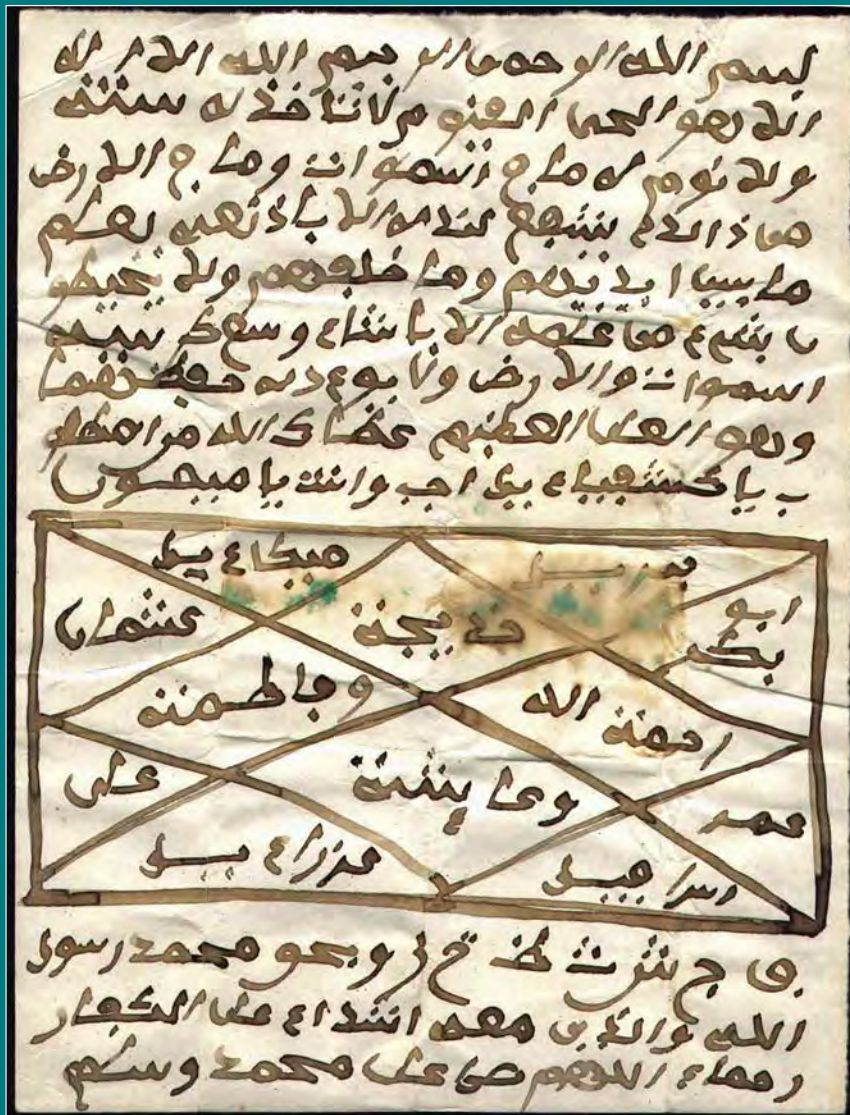 بسم الله الرحمن الرحيم الله لا اله
الا هو الحي القيوم لا تاخذه سنة
ولا نوم له ما في السموات وما في الارض
من ذا الذي يشفع عنده الا باذنه يعلم
ما بين ايديهم وما خلفهم ولا يحيطو
ن بشيء من علمه الا بما شاء وسع كرسيه
السموات والارض ولا يوده حفظهما
وهو العلي العظيم الله
ب يا اجب وانت يا ميمون
ميكاءيل
ابو
بكر
خديجة
عثمان
رحمة الله
وفاطمة
عمر
وعايشة
على
اسرافيل
عزراءيل
ف ج ش ث ظ خ ز و بحق محمد رسول
الله والذين معه اشداء على الكفار
رحماء اللهم صل على محمد وسلم